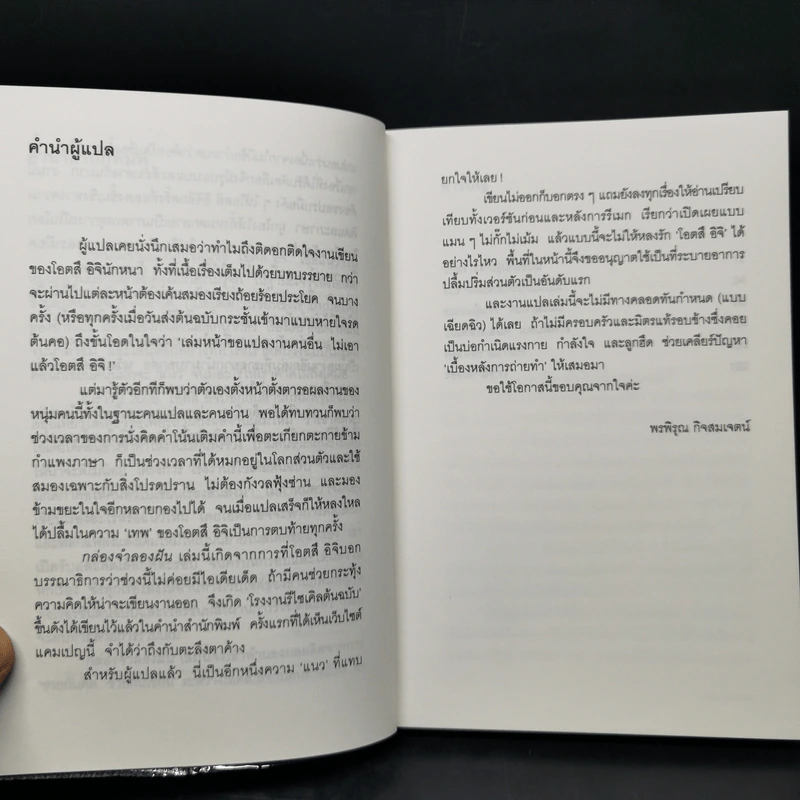 คำนำผู้แปล
ผู้แปลเคยนั่งนึกเสมอว่าทำไมถึงติดอกติดใจงานเขียน
ของโอตสึ อิจินักหนา ทั้งที่เนื้อเรื่องเต็มไปด้วยบทบรรยาย กว่า
จะผ่านไปแต่ละหน้าต้องเค้นสมองเรียงถ้อยร้อยประโยค จนบาง
ครั้ง (หรือทุกครั้งเมื่อวันส่งต้นฉบับกระชั้นเข้ามาแบบหายใจรด
ต้นคอ) ถึงขั้นโอดในใจว่า ‘เล่มหน้าขอแปลงานคนอื่น ไม่เอา
แล้วโอตสึ อิจิ!’
แต่มารู้ตัวอีกทีก็พบว่าตัวเองตั้งหน้าตั้งตารอผลงานของ
หนุ่มคนนี้ทั้งในฐานะคนแปลและคนอ่าน พอได้ทบทวนก็พบว่า
ช่วงเวลาของการนั่งคิดคำโน้นเติมคำนี้เพื่อตะเกียกตะกายข้าม
กำแพงภาษา ก็เป็นช่วงเวลาที่ได้หมกอยู่ในโลกส่วนตัวและใช้
สมองเฉพาะกับสิ่งโปรดปราน ไม่ต้องกังวลฟุ้งซ่าน และมอง
ข้ามขยะในใจอีกหลายกองไปได้ จนเมื่อแปลเสร็จก็ให้หลงใหล
ได้ปลื้มในความ ‘เทพ’ ของโอตสึ อิจิเป็นการตบท้ายทุกครั้ง
กล่องจำลองฝัน เล่มนี้เกิดจากการที่โอตสึ อิจิบอก
บรรณาธิการว่าช่วงนี้ไม่ค่อยมีไอเดียเด็ด ถ้ามีคนช่วยกระทุ้ง
ความคิดให้น่าจะเขียนงานออก จึงเกิด ‘โรงงานรีไซเคิลต้นฉบับ’
ขึ้นดังได้เขียนไว้แล้วในคำนำสำนักพิมพ์ ครั้งแรกที่ได้เห็นเว็บไซต์
แคมเปญนี้ จำได้ว่าถึงกับตะลึงตาค้าง
สำหรับผู้แปลแล้ว นี่เป็นอีกหนึ่งความ ‘แนว’ ที่แทบ
ยกใจให้เลย!
เขียนไม่ออกก็บอกตรง ๆ แถมยังลงทุกเรื่องให้อ่านเปรียบ
เทียบทั้งเวอร์ชันก่อนและหลังการรีเมก เรียกว่าเปิดเผยแบบ
แมน ๆ ไม่กั๊กไม่เม้ม แล้วแบบนี้จะไม่ให้หลงรัก ‘โอตสึ อิจิ’ ได้
อย่างไรไหว พื้นที่ในหน้านี้จึงขออนุญาตใช้เป็นที่ระบายอาการ
ปลื้มปริ่มส่วนตัวเป็นอันดับแรก
และงานแปลเล่มนี้จะไม่มีทางคลอดทันกำหนด (แบบ
เฉียดฉิว) ได้เลย ถ้าไม่มีครอบครัวและมิตรแท้รอบข้างซึ่งคอย
เป็นบ่อกำเนิดแรงกาย กำลังใจ และลูกฮึด ช่วยเคลียร์ปัญหา
‘เบื้องหลังการถ่ายทำ’ ให้เสมอมา
ขอใช้โอกาสนี้ขอบคุณจากใจค่ะ
พรพิรุณ กิจสมเจตน์